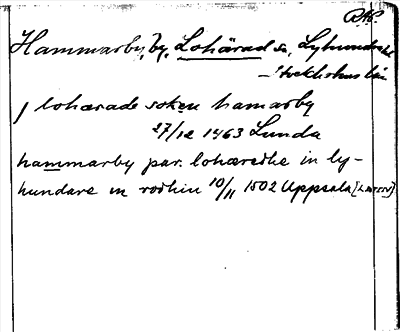 Hammarby, by, Lohärad sn, Lyhundra hd
Stockholms län
J lohærade sokæn hamarby
27/12 1463 Lunda
hammarby par. lohæredhe in ly-
hundare in rodhin 10/11 1502 Uppsala [LATIN]